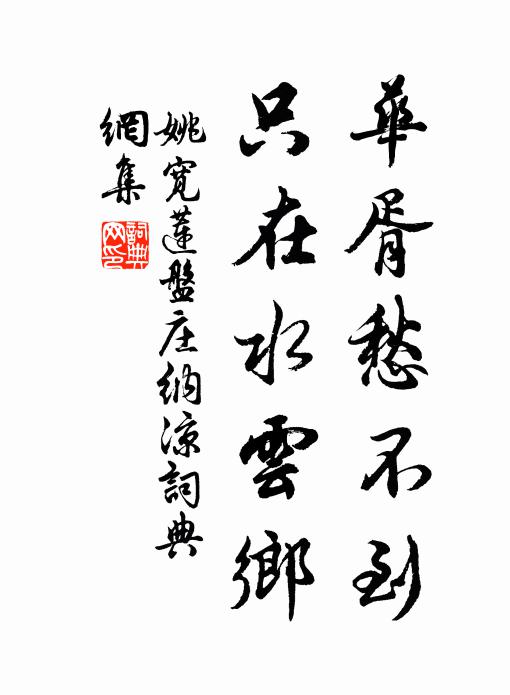 華胥愁不到
只在水雲鄉
姚寬蓮盤庄納涼詞典
網集
詞典网印